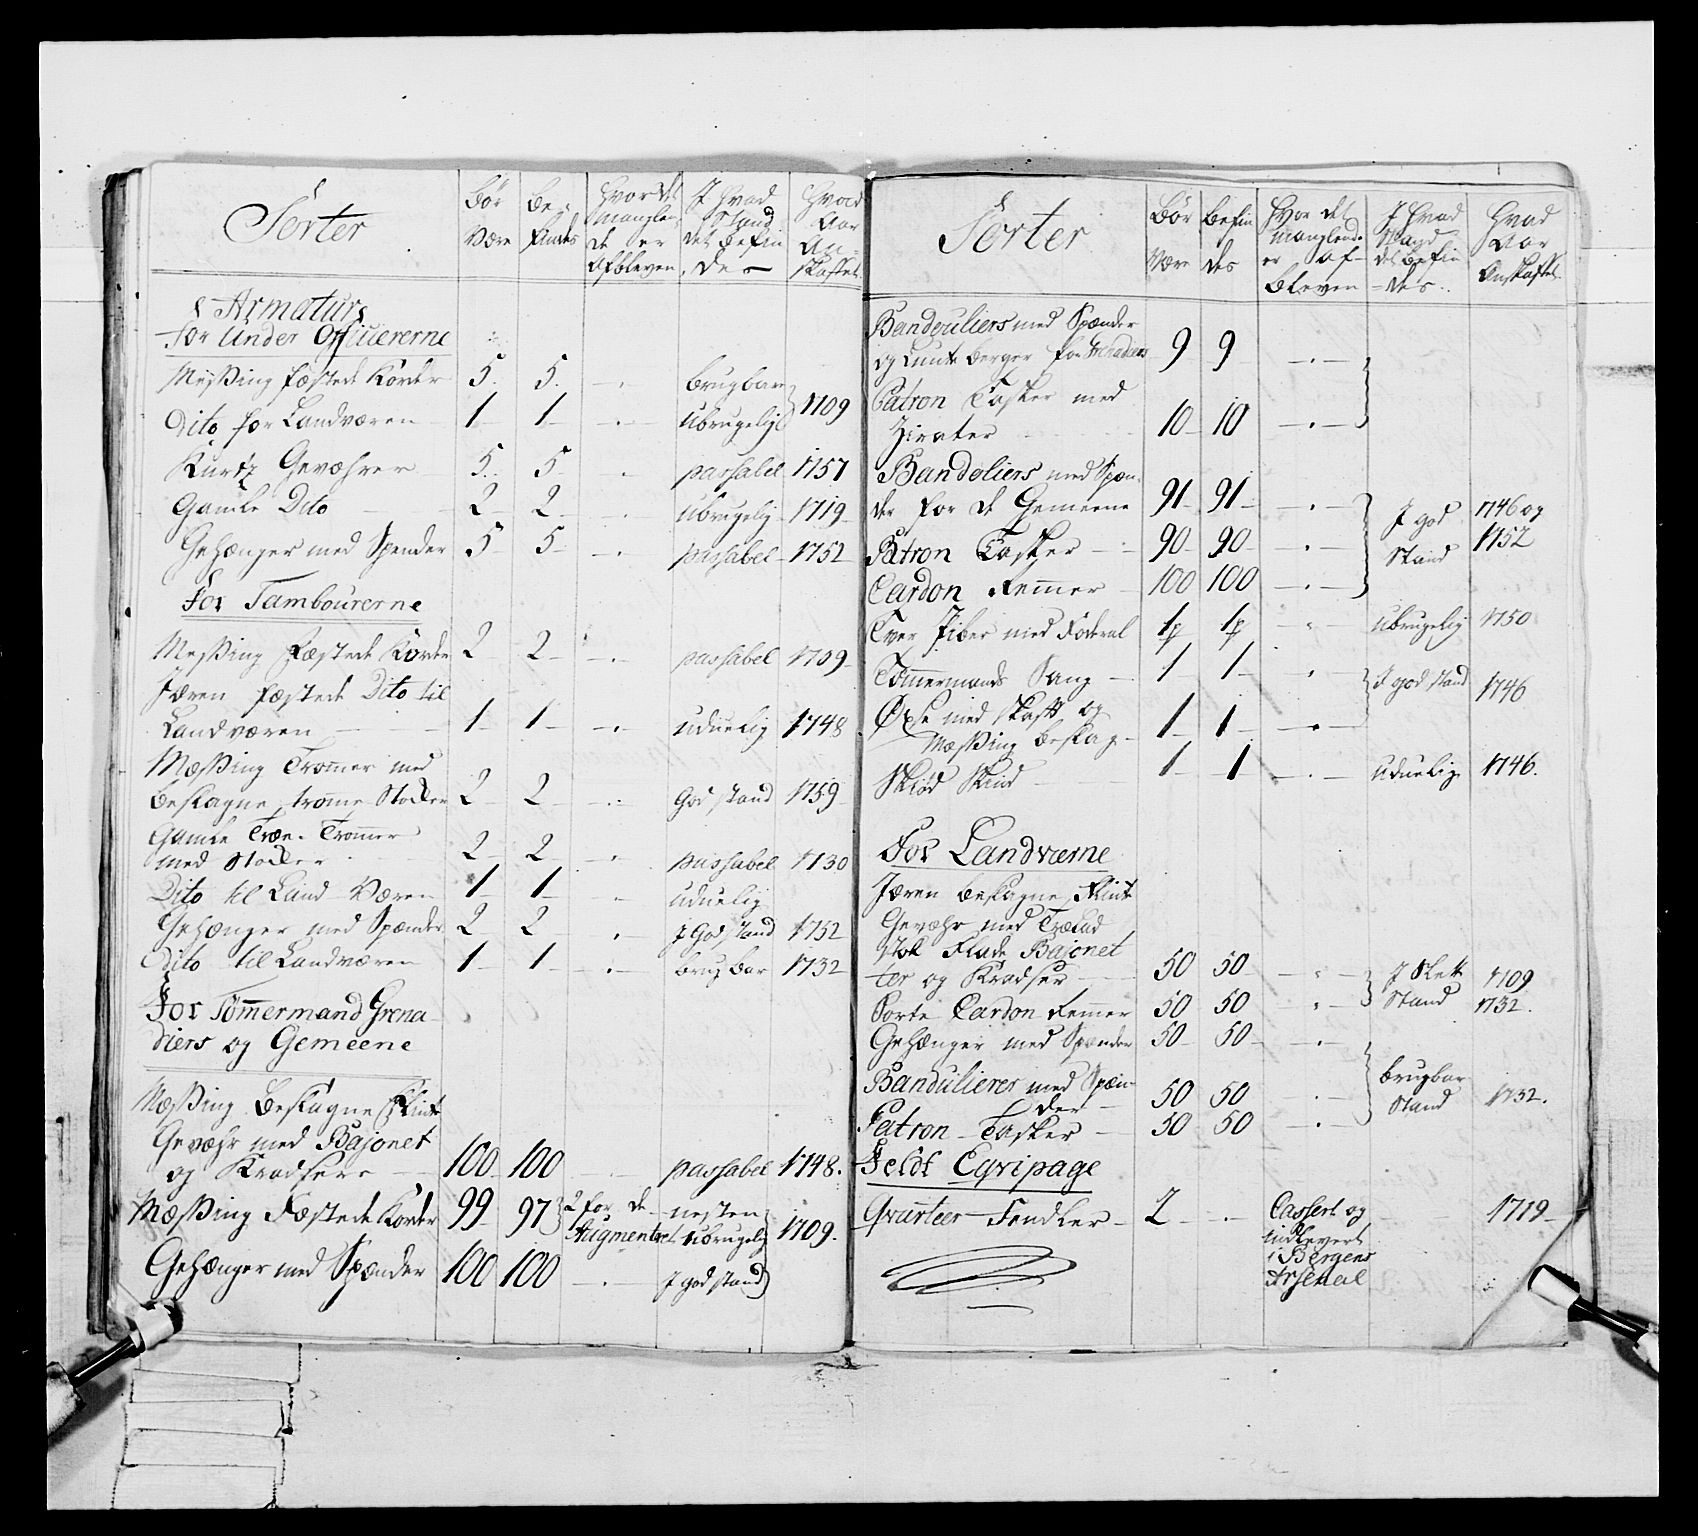 Sorter
Bør Være
Befindes
Hvor det manglende er afbleven
I hvad Stand det befindes
Hvad Aar Anskaffet
Armatur
for Under Officererne
Messing fæstede Korder 5. 5. brugbare
Dito for Landværen 1 1 Ubrugelig 1709
Kurtz Gevæhrer 5. 5 passabel 1757
Gamle Dito 2 2 Ubrugelig 1719
Gehænger med Spender 5 5 passabel 1752
For Tambourerne
Messing Fæstede Korder 2 2 passabel 1709
Jæren fæstede Dito til
Landværen 1 1 uduelig 1748
Messing Trommer med
beslagne tromme Stocker 2 2 God stand 1759
Gamle Træe Trommer
med Stocker 2 2 passabel 1730
Dito til Land Væren 1 1 uduelig
Gehænger med Spænder 2 2 I God stand 1752
Dito til Landværen 1 1 brugbar 1732
For Tømmermand Grena
diers og Gemeene
Messing Beslagne Flint
Gevæhr med Bajonet
og Kradsere 100 100 passabel 1748.
Messing Fæstede Korder 99 97 2 for de Augmenteret nesten ubrugelig 1709.
Gehænger med Spænder 100 100 I god stand
Sorter
Bør Være
Befindes
Hvor det manglende er afbleven
I hvad Stand det befindes
Hvad Aar Anskaffet
Bandouliers med Spænder
og Lunte berger for Grenadiers 9 9
Patron Tasker med
Zirater 10 10
Bandoliers med Spæn-
der for de Gemeene 91 91 I god Stand 1746 og 1752
Patron Tasker 90 90
Cardon Remmer 100 100
Tver Piber med Foderal 1p 1p Ubrugelig 1750
Tømmermands Saug 1 1 I god stand 1746
Øxe med skaft og
Messing beslag 1 1
Skiød Skind 1 1 Uduelig 1746.
For Landværne
Jæren beslagne Flint
Gevæhr med Trælad
stok Flade Bajonet
ter og Kradser 50 50 I Slett Stand 1709 1732.
Porte Cardon Remmer 50 50
Gehænger med Spænder 50 50
Bandulierer med Spæn-
der 50 50 brugbar Stand 1732.
Patron Tasker 50 50
Feldt Eqvipage
Qvarteer Fendler 2 Cassert og indlevert i Bergens Arsenal 1719